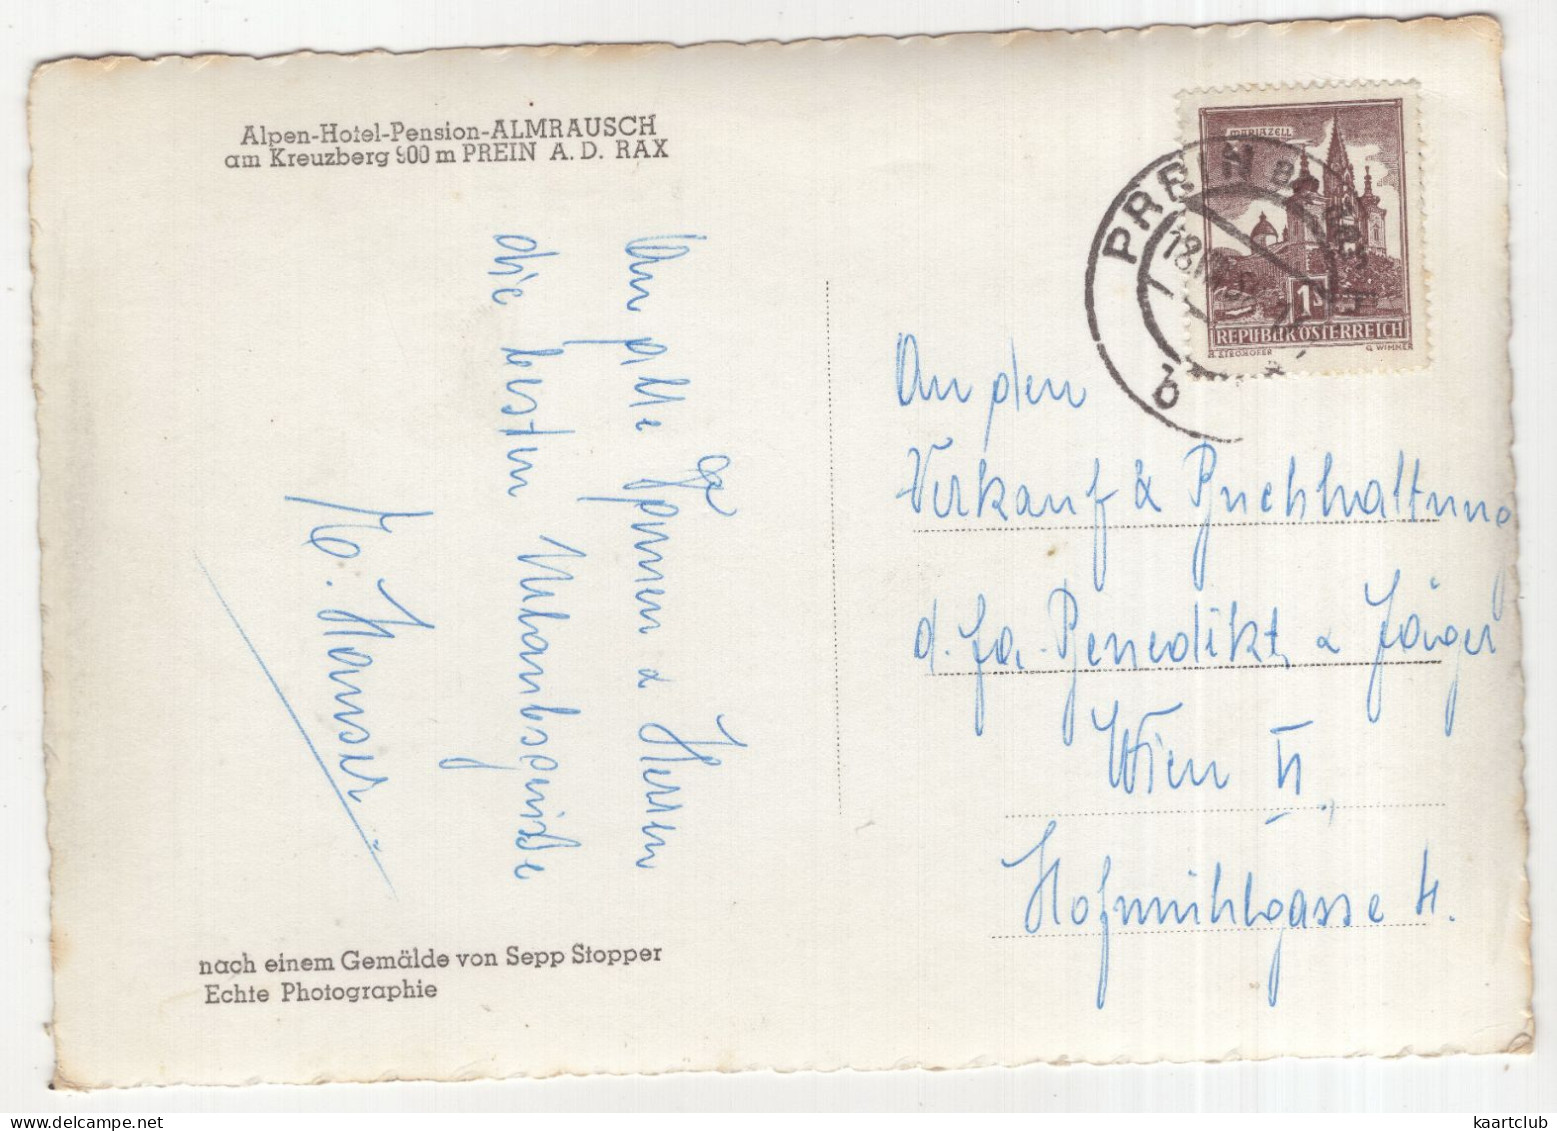 Alpen-Hotel-Pension-ALMRAUSCH
am Kreuzberg 900 m PREIN A. D. RAX
An alle Damen & Herren
die besten Urlaubsgrüße
H. Hauser
nach einem Gemälde von Sepp Stopper
Echte Photographie
MARIAZELL
1S
REPUBLIK ÖSTERREICH
G. WIMMER
PREIN
18.
b
An den
Verkauf & Buchhaltung
d. Fa. Benedikt & Jäger
Wien VI.
Hofmühlgasse 4.
kaartclub